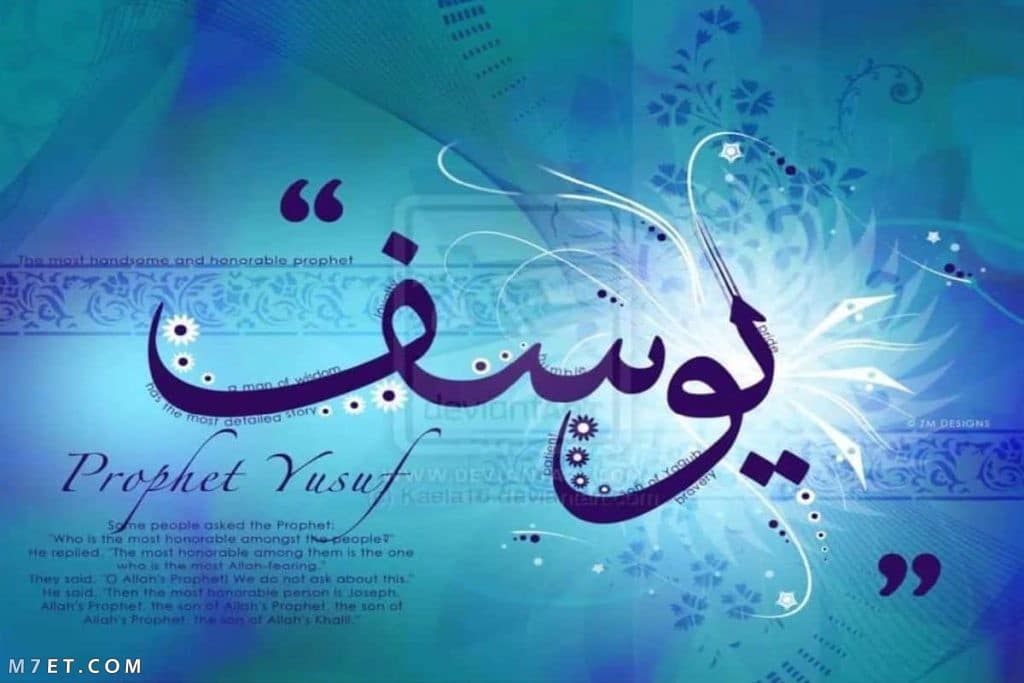 The most handsome and honorable prophet
يوسف
loyalty
pride
humble
a man of wisdom
has the most detailed story
patient
son of Yaqub
bravery
© ZM DESIGNS
deviantART
WWW.DEVIANTART.COM
Kaela16.deviantart.com
Prophet Yusuf
Some people asked the Prophet:
"Who is the most honorable amongst the people?"
He replied, "The most honorable among them is the one
who is the most Allah-fearing."
They said, "O Allah's Prophet! We do not ask about this."
He said, "Then the most honorable person is Joseph,
Allah's Prophet, the son of Allah's Prophet, the son of
Allah's Prophet, the son of Allah's Khalil."
M7ET.COM